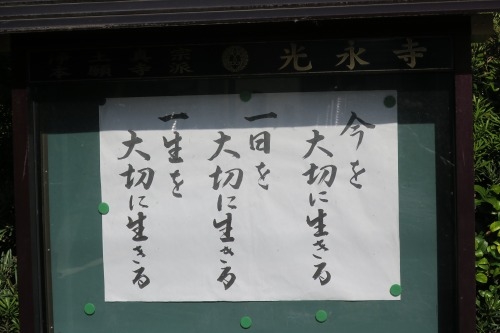 光永寺
今を
大切に生きる
一日を
大切に生きる
一生を
大切に生きる